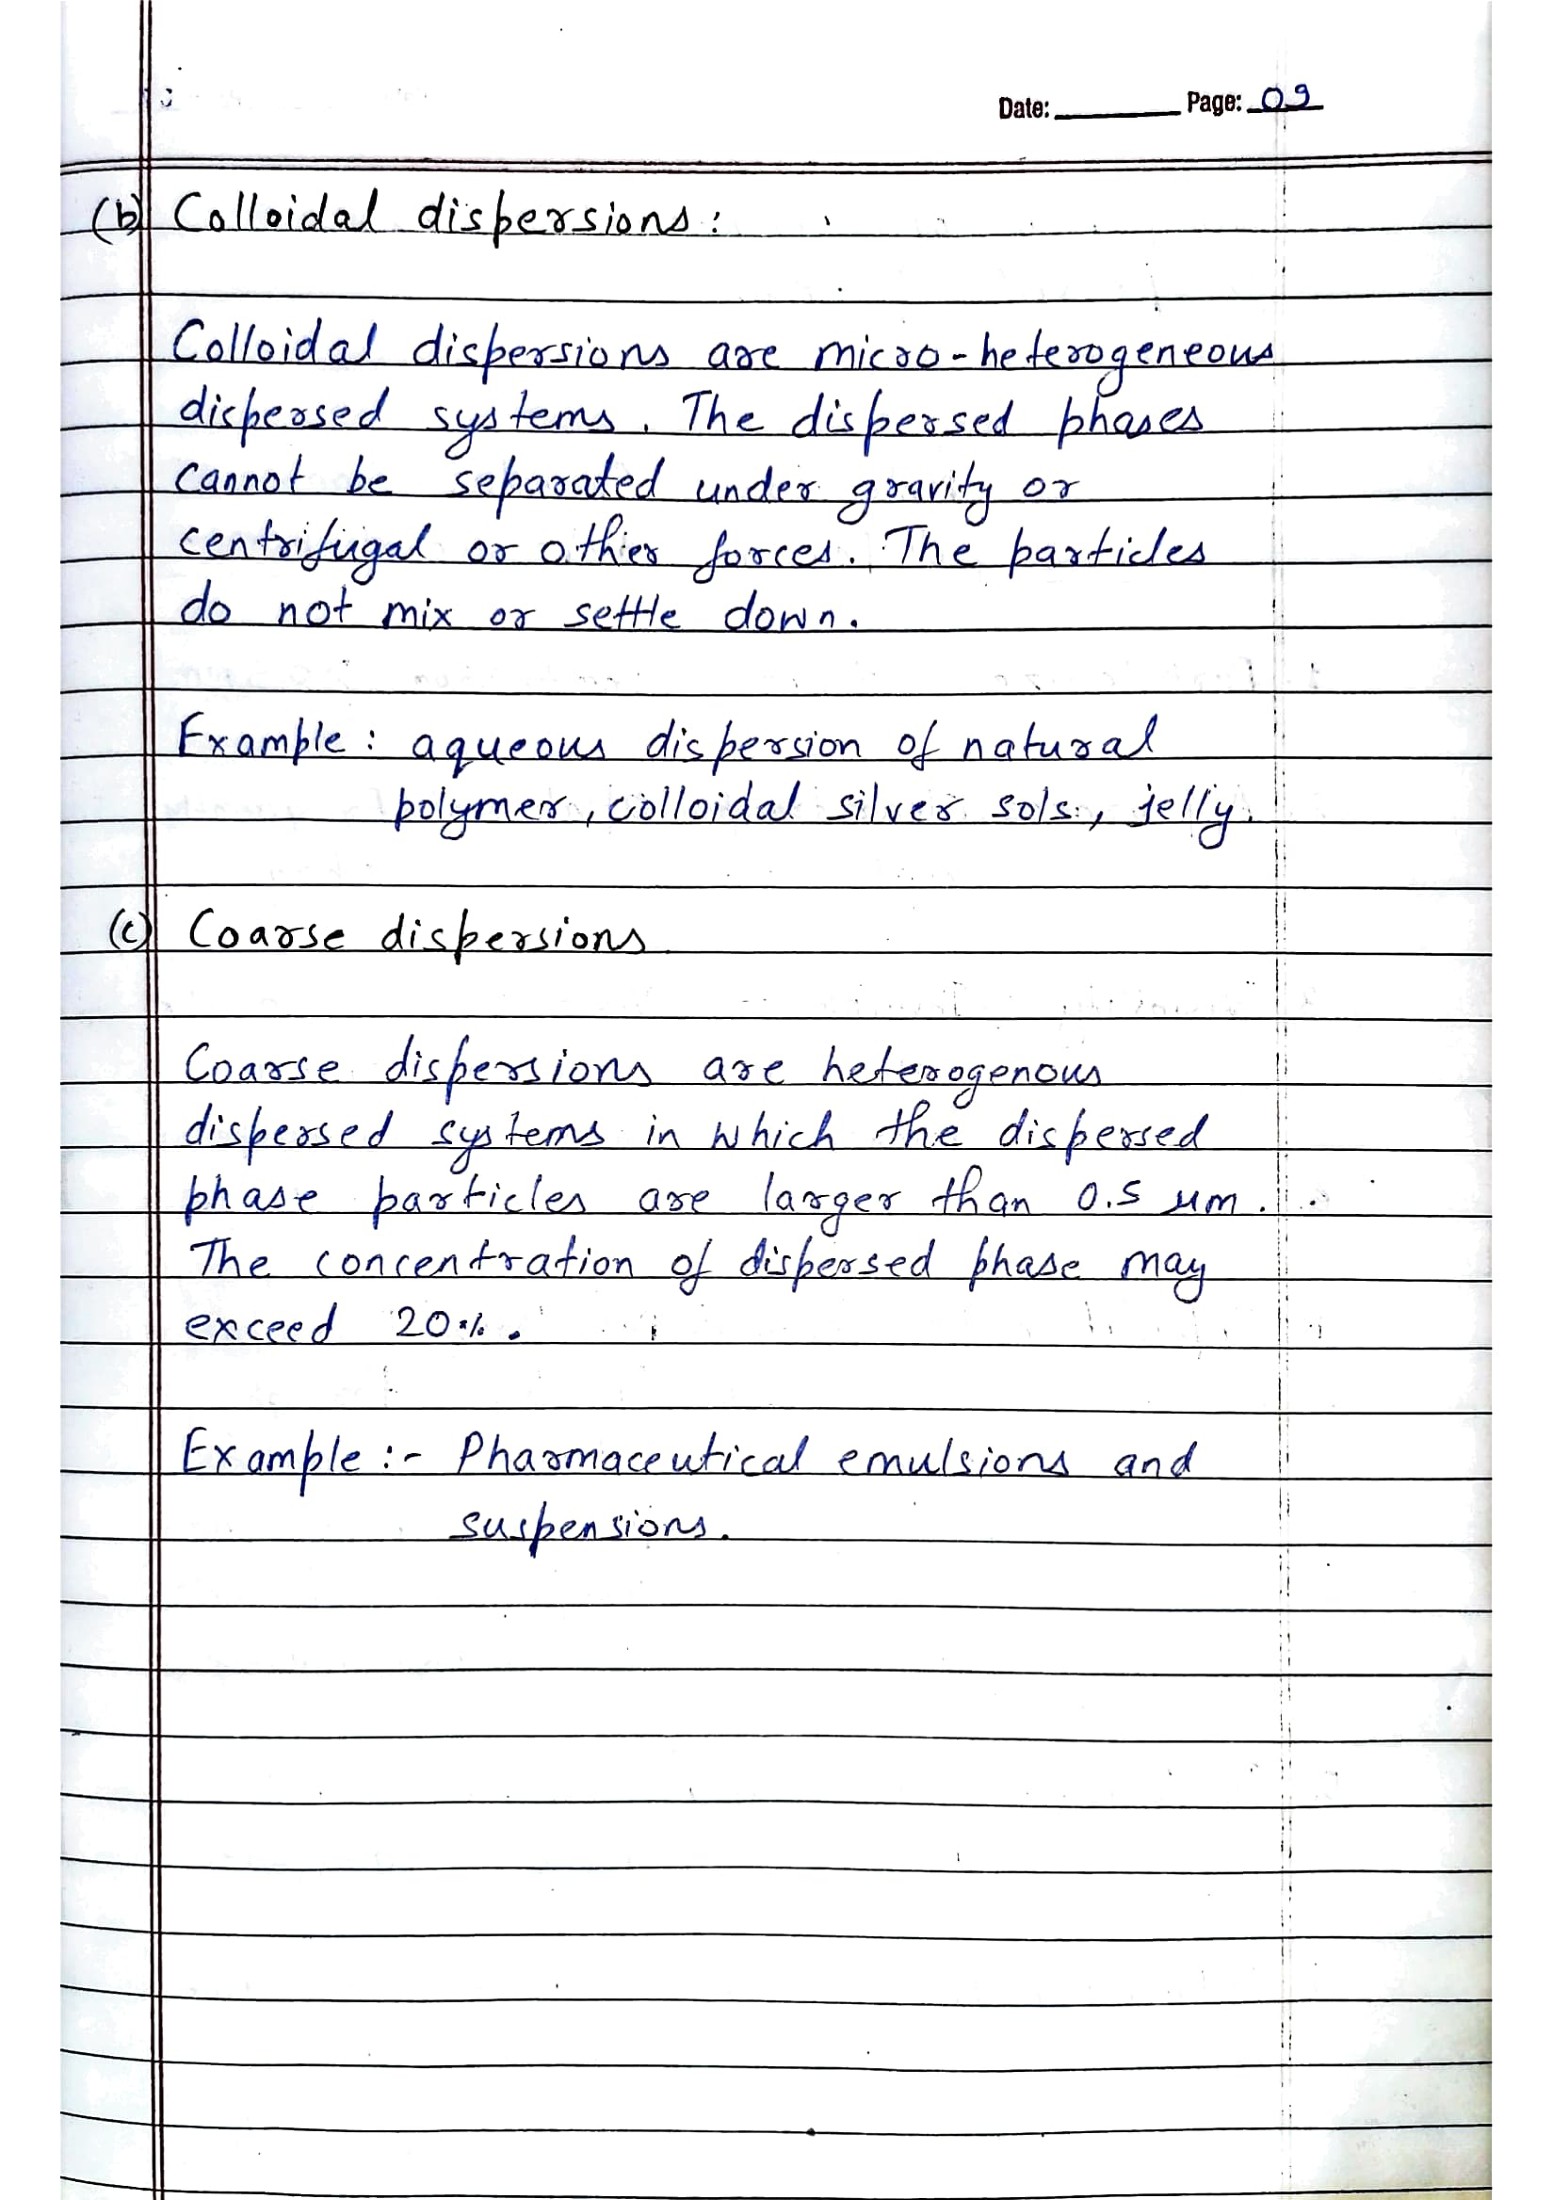 Date: Page: 09
(b) Colloidal dispersions:
Colloidal dispersions are micro-heterogeneous
dispersed systems. The dispersed phases
cannot be separated under gravity or
centrifugal or other forces. The particles
do not mix or settle down.
Example: aqueous dispersion of natural
polymer, colloidal silver sols, jelly.
(c) Coarse dispersions
Coarse dispersions are heterogenous
dispersed systems in which the dispersed
phase particles are larger than 0.5 µm.
The concentration of dispersed phase may
exceed 20%.
Example:- Pharmaceutical emulsions and
suspensions.